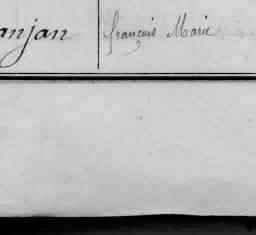 anjan françois Marie